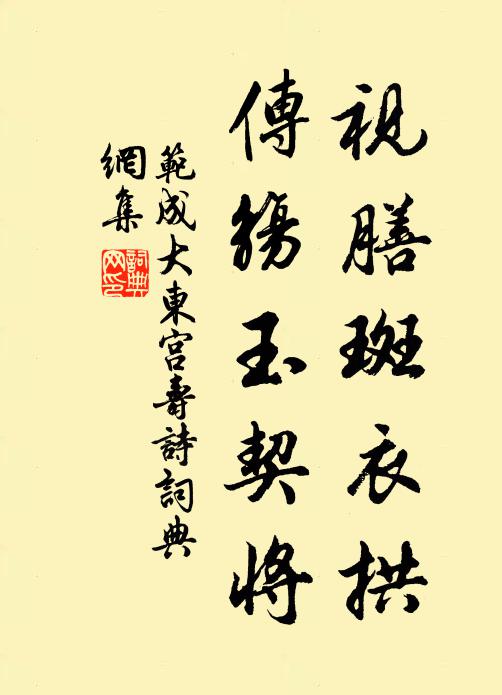 視膳斑衣拱
傳觴玉契將
範成大東宮壽詩詞典
網集
詞典
网印